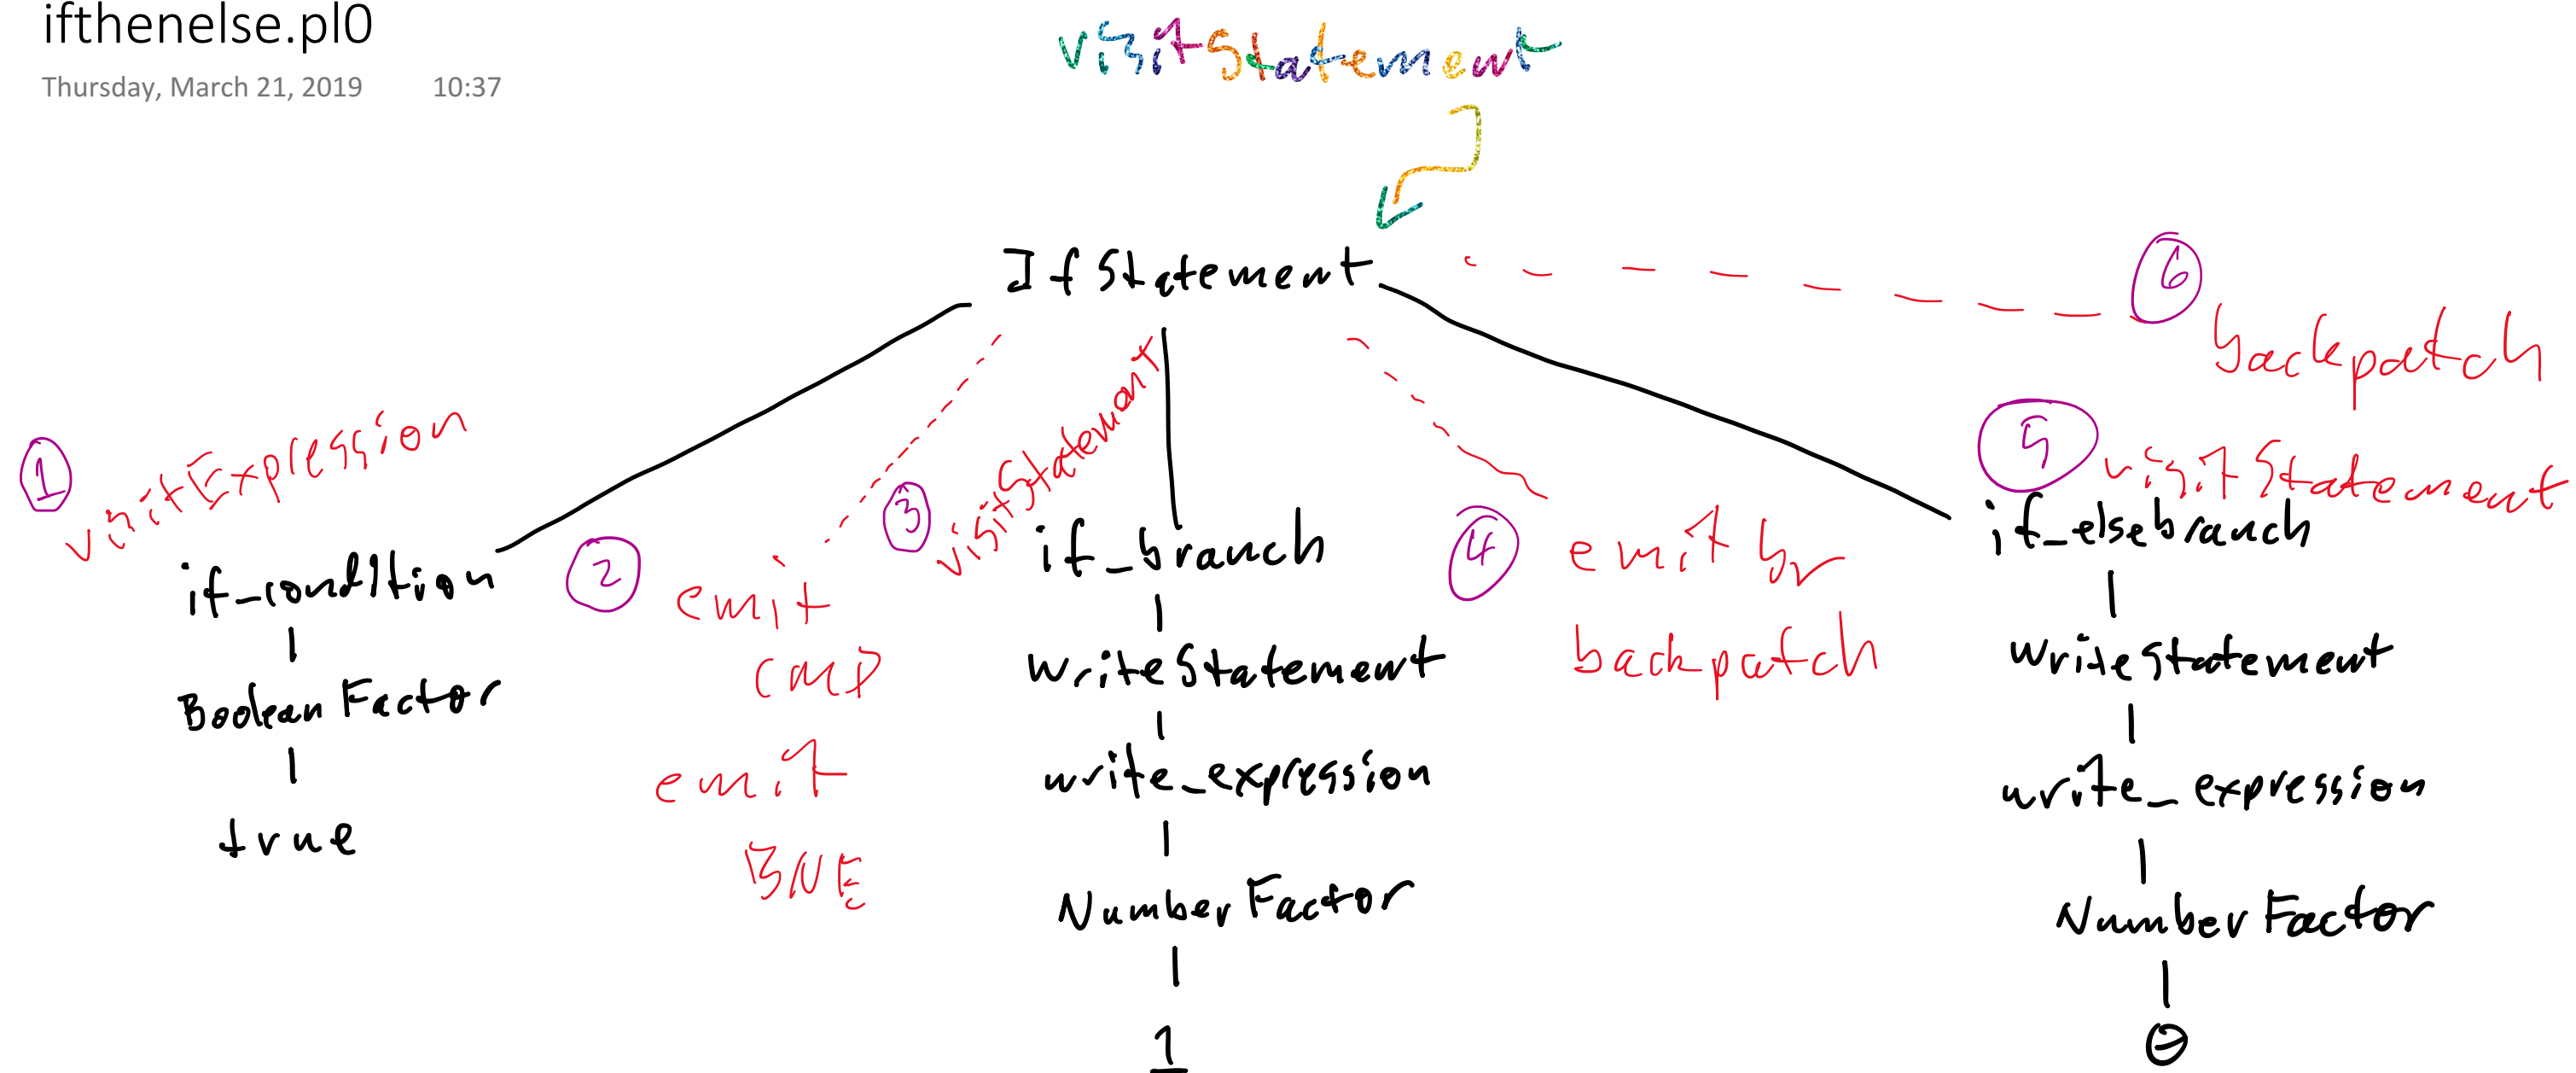 ifthenelse.pl0
Thursday, March 21, 2019 10:37
visitStatement
IfStatement
6
backpatch
1
visitExpression
if_condition
Boolean Factor
true
2
emit
CMP
emit
BNE
3
visitStatement
if_branch
writeStatement
write_expression
Number Factor
1
4
emit br
backpatch
5
visitStatement
if_elsebranch
writeStatement
write_expression
Number Factor
0